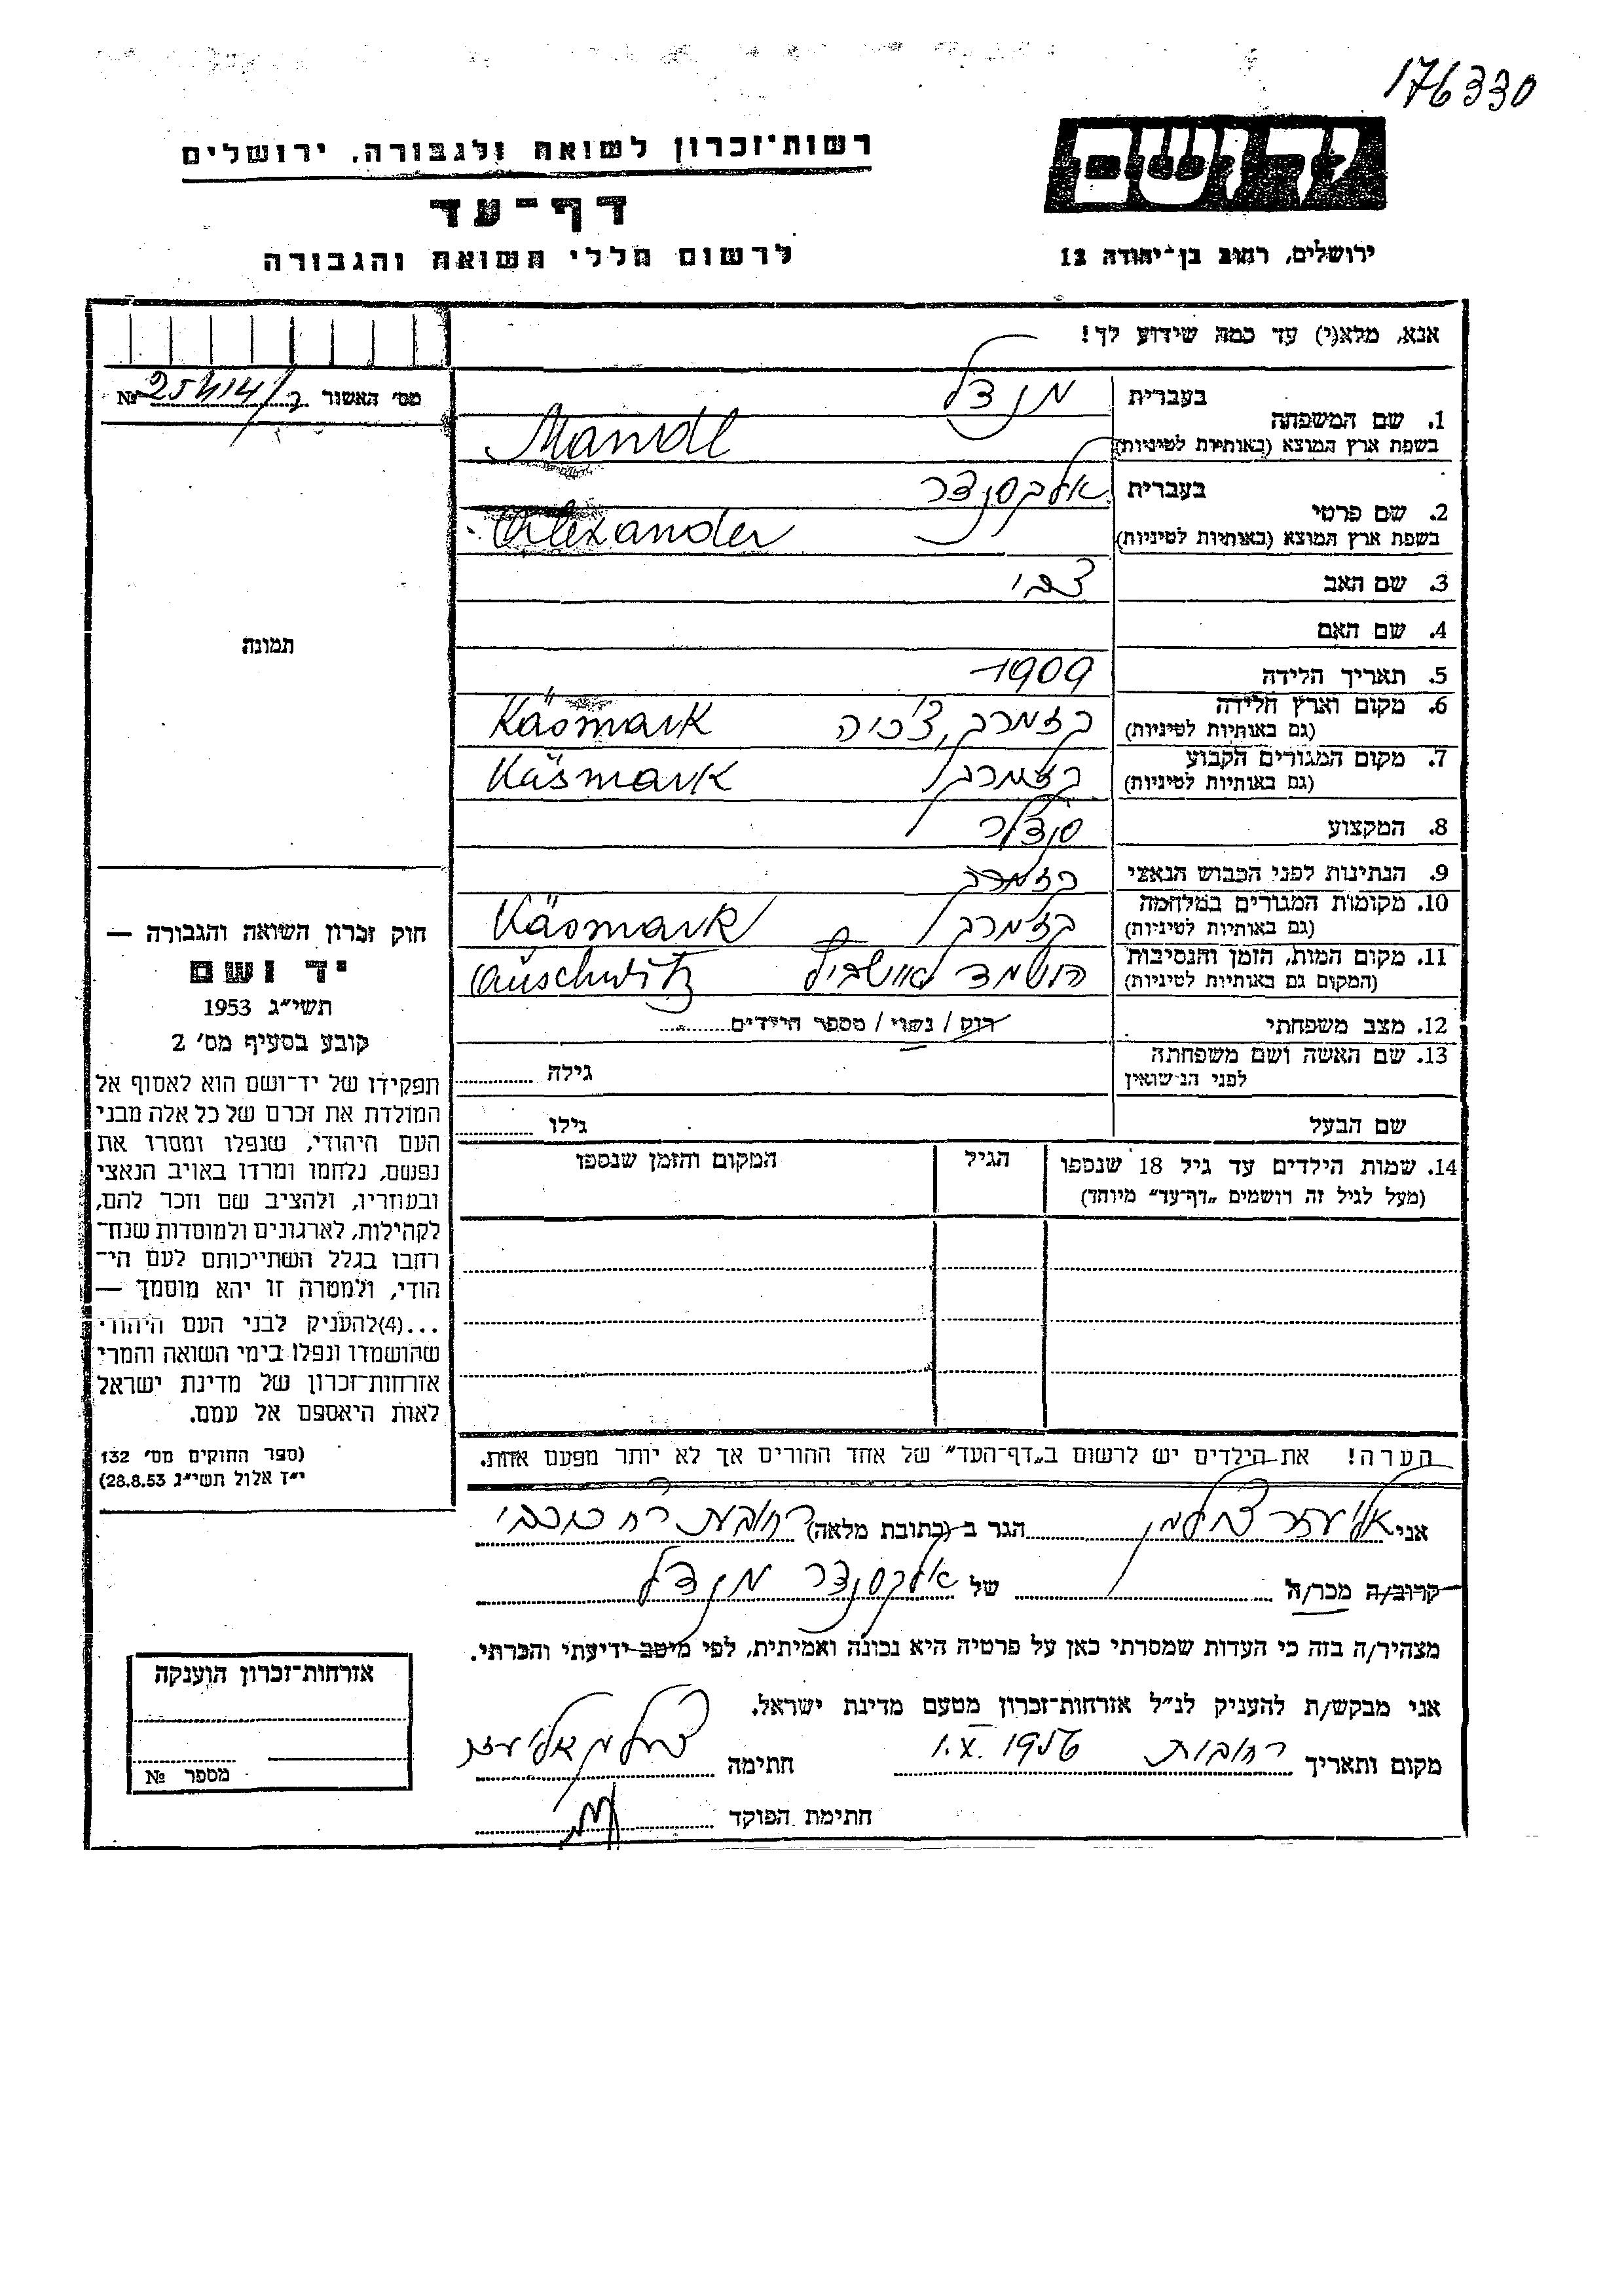 176330
יד ושם
ירושלים, רחוב בן־יהודה 12
רשות־זכרון לשואה ולגבורה, ירושלים
דף־עד
לרשום חללי השואה והגבורה
אנא, מלא(י) עד כמה שידוע לך!
מס' האשור № 25414/ב
1. שם המשפחה
בעברית מנדל
בשפת ארץ המוצא (באותיות לטיניות) Mandl
2. שם פרטי
בעברית אלכסנדר
בשפת ארץ המוצא (באותיות לטיניות) Alexander
3. שם האב צבי
4. שם האם
5. תאריך הלידה 1909
6. מקום וארץ הלידה קזמרק, צ'כיה Käsmark
(גם באותיות לטיניות)
7. מקום המגורים הקבוע קזמרק Käsmark
(גם באותיות לטיניות)
8. המקצוע סנדלר
9. הנתינות לפני הכבוש הנאצי קזמרק
10. מקומות המגורים במלחמה קזמרק Käsmark
(גם באותיות לטיניות)
11. מקום המות, הזמן והנסיבות הושמד Auschwitz
(המקום גם באותיות לטיניות)
12. מצב משפחתי רוק / נשוי / מספר הילדים
13. שם האשה ושם משפחתה גילה
לפני הנישואין
שם הבעל גילו
14. שמות הילדים עד גיל 18 שנספו הגיל המקום והזמן שנספו
(מעל לגיל זה רושמים „דף־עד” מיוחד)
הערה! את הילדים יש לרשום ב„דף־העד” של אחד ההורים אך לא יותר מפעם אחת.
אני אליעזר הגר ב (כתובת מלאה) רחובות רח
קרוב/ה מכר/ה של אלכסנדר מנדל
מצהיר/ה בזה כי העדות שמסרתי כאן על פרטיה היא נכונה ואמיתית, לפי מיטב ידיעתי והכרתי.
אני מבקש/ת להעניק לנ״ל אזרחות־זכרון מטעם מדינת ישראל.
מקום ותאריך רחובות 1.X.1956 חתימה אליעזר
חתימת הפוקד
תמונה
חוק זכרון השואה והגבורה —
יד ושם
תשי״ג 1953
קובע בסעיף מס' 2
תפקידו של יד־ושם הוא לאסוף אל
המולדת את זכרם של כל אלה מבני
העם היהודי, שנפלו ומסרו את
נפשם, נלחמו ומרדו באויב הנאצי
ובעוזריו, ולהציב שם וזכר להם,
לקהילות, לארגונים ולמוסדות שנח־
רבו בגלל השתייכותם לעם הי־
הודי, ולמטרה זו יהא מוסמך —
...(4)להעניק לבני העם היהודי
שהושמדו ונפלו בימי השואה והמרי
אזרחות־זכרון של מדינת ישראל
לאות היאספם אל עמם.
(ספר החוקים מס' 132
י״ז אלול תשי״ג 28.8.53)
אזרחות־זכרון הוענקה
מספר №